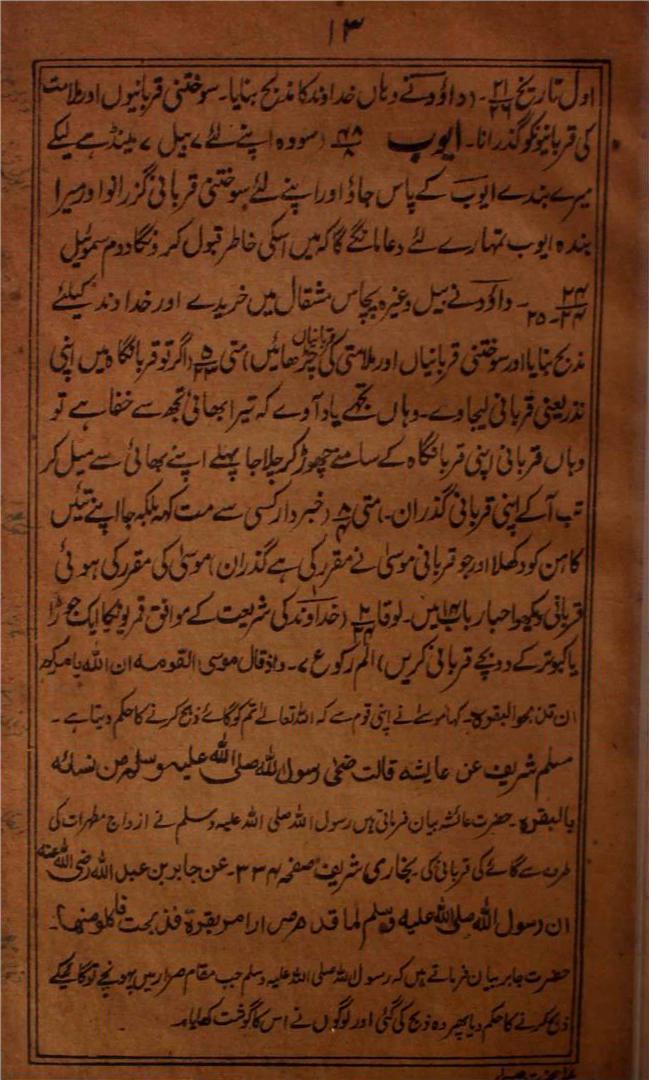 ۱۳
اول تاریخ ۲۱/۲۶۔ (داؤد نے وہاں خداوند کا مذبح بنایا۔ سوختنی قربانیوں اور سلامت
کی قربانیونکو گذرانا۔ ایوب ۴۲/۸ (سو وہ اپنے لئے ۷ بیل ۷ مینڈھے لیکے
میرے بندے ایوب کے پاس جاؤ اور اپنے لئے سوختنی قربانی گزرانو اور میرا
بندہ ایوب تمہارے لئے دعا مانگے گا کہ میں اسکی خاطر قبول کرونگا دوم سموئیل
۲۴/۲۴-۲۵۔ داؤد نے بیل وغیرہ پچاس مشقال میں خریدے اور خداوند کیلئے
مذبح بنایا اور سوختنی قربانیاں اور سلامتی کی قربانیاں چڑھائیں) متی ۵/۲۳ (اگر تو قربانگاہ میں اپنی
نذر یعنی قربانی لیجاوے۔ وہاں تجھے یاد آوے کہ تیرا بھائی تجھ سے خفا ہے تو
وہاں قربانی اپنی قربانگاہ کے سامنے چھوڑ کر چلا جا پہلے اپنے بھائی سے میل کر
تب آکے اپنی قربانی گذران۔) متی ۸/۴ (خبردار کسی سے مت کہہ بلکہ جا اپنے تئیں
کاہن کو دکھلا اور جو قربانی موسیٰ نے مقرر کی ہے گذران) موسیٰ کی مقرر کی ہوئی
قربانی دیکھو احبار باب ۱۴ میں۔ لوقا ۲/۲۴ (خداوند کی شریعت کے موافق قمریونکا ایک جوڑا
یا کبوتر کے دو بچے قربانی کریں) الم رکوع ۷۔ واذ قال موسی لقومه ان الله یامرکم
ان تذبحوا بقرۃ۔ کہا موسیٰ نے اپنی قوم سے کہ اللہ تعالےٰ تم کو گائے ذبح کرنے کا حکم دیتا ہے۔
مسلم شریف عن عایشه قالت ضحی رسول الله صلی الله علیه وسلم عن نسائه
بالبقرۃ۔ حضرت عائشہ بیان فرماتی ہیں رسول اللہ صلی اللہ علیہ وسلم نے ازواج مطہرات کی
طرف سے گائے کی قربانی کی۔ بخاری شریف صفحہ ۳۳۴۔ عن جابر بن عبد الله رضی الله عنه
ان رسول الله صلی الله علیه وسلم لما قدم صرارا امر ببقرۃ فذبحت فاکلو منها۔
حضرت جابر بیان فرماتے ہیں کہ رسول اللہ صلی اللہ علیہ وسلم جب مقام صرار میں پہونچے تو گائے کے
ذبح کرنے کا حکم دیا پھر وہ ذبح کی گئی اور لوگوں نے اس کا گوشت کھایا۔